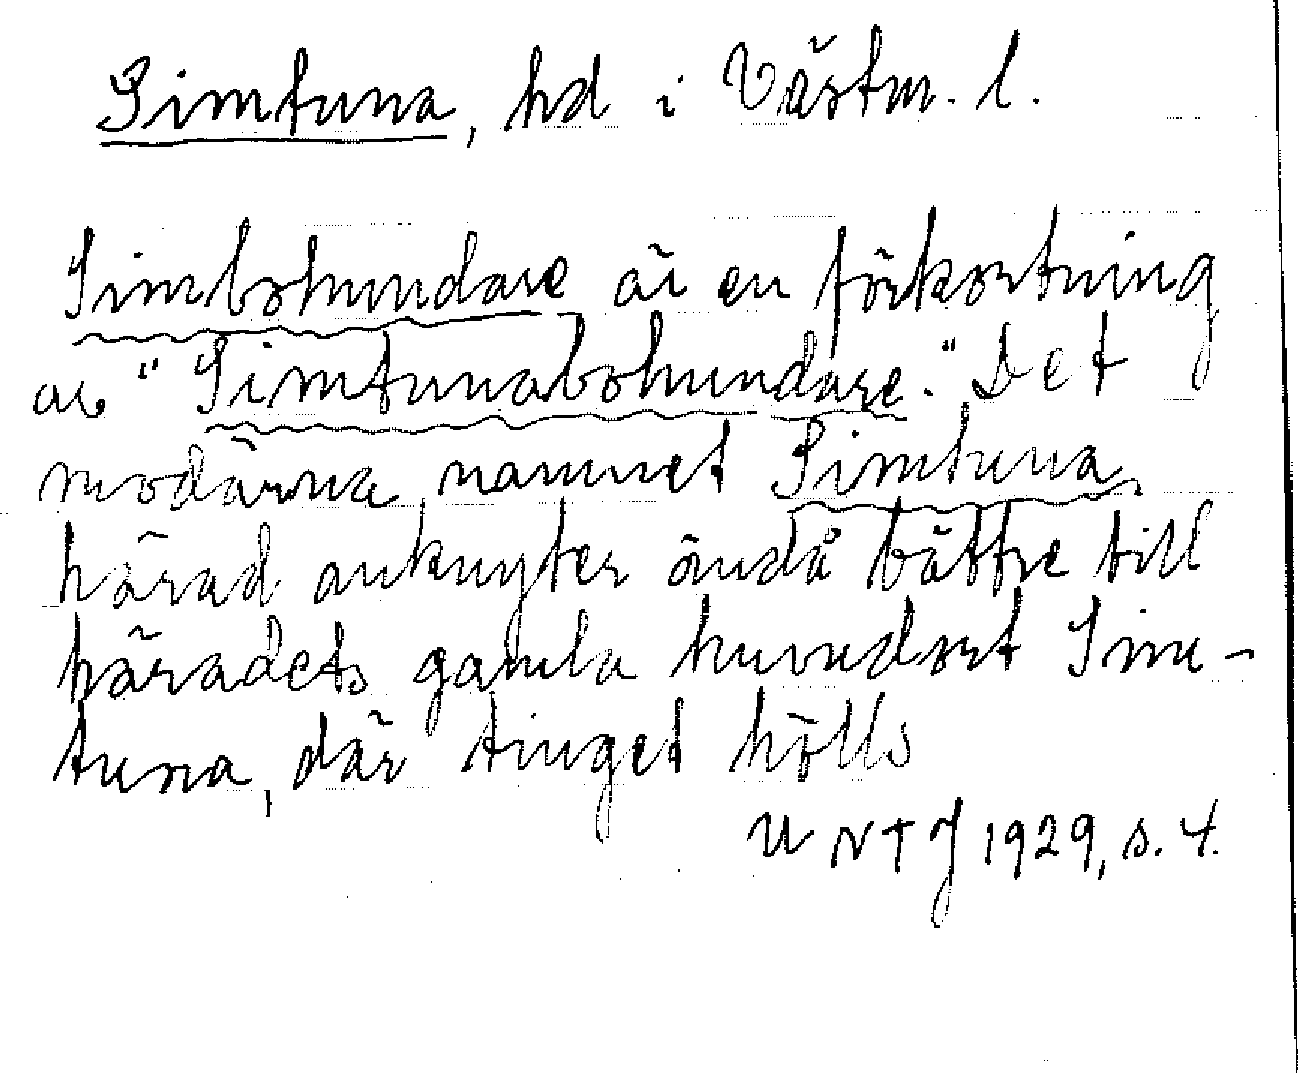 Simtuna, hd i Västm. l.
Simbohundare är en förkortning
av "Simtunabohundare." Det
modärna namnet Simtuna
härad anknyter ändå bättre till
häradets gamla huvudort Sim-
tuna, där tinget hölls
UNTJ 1929, s. 4.